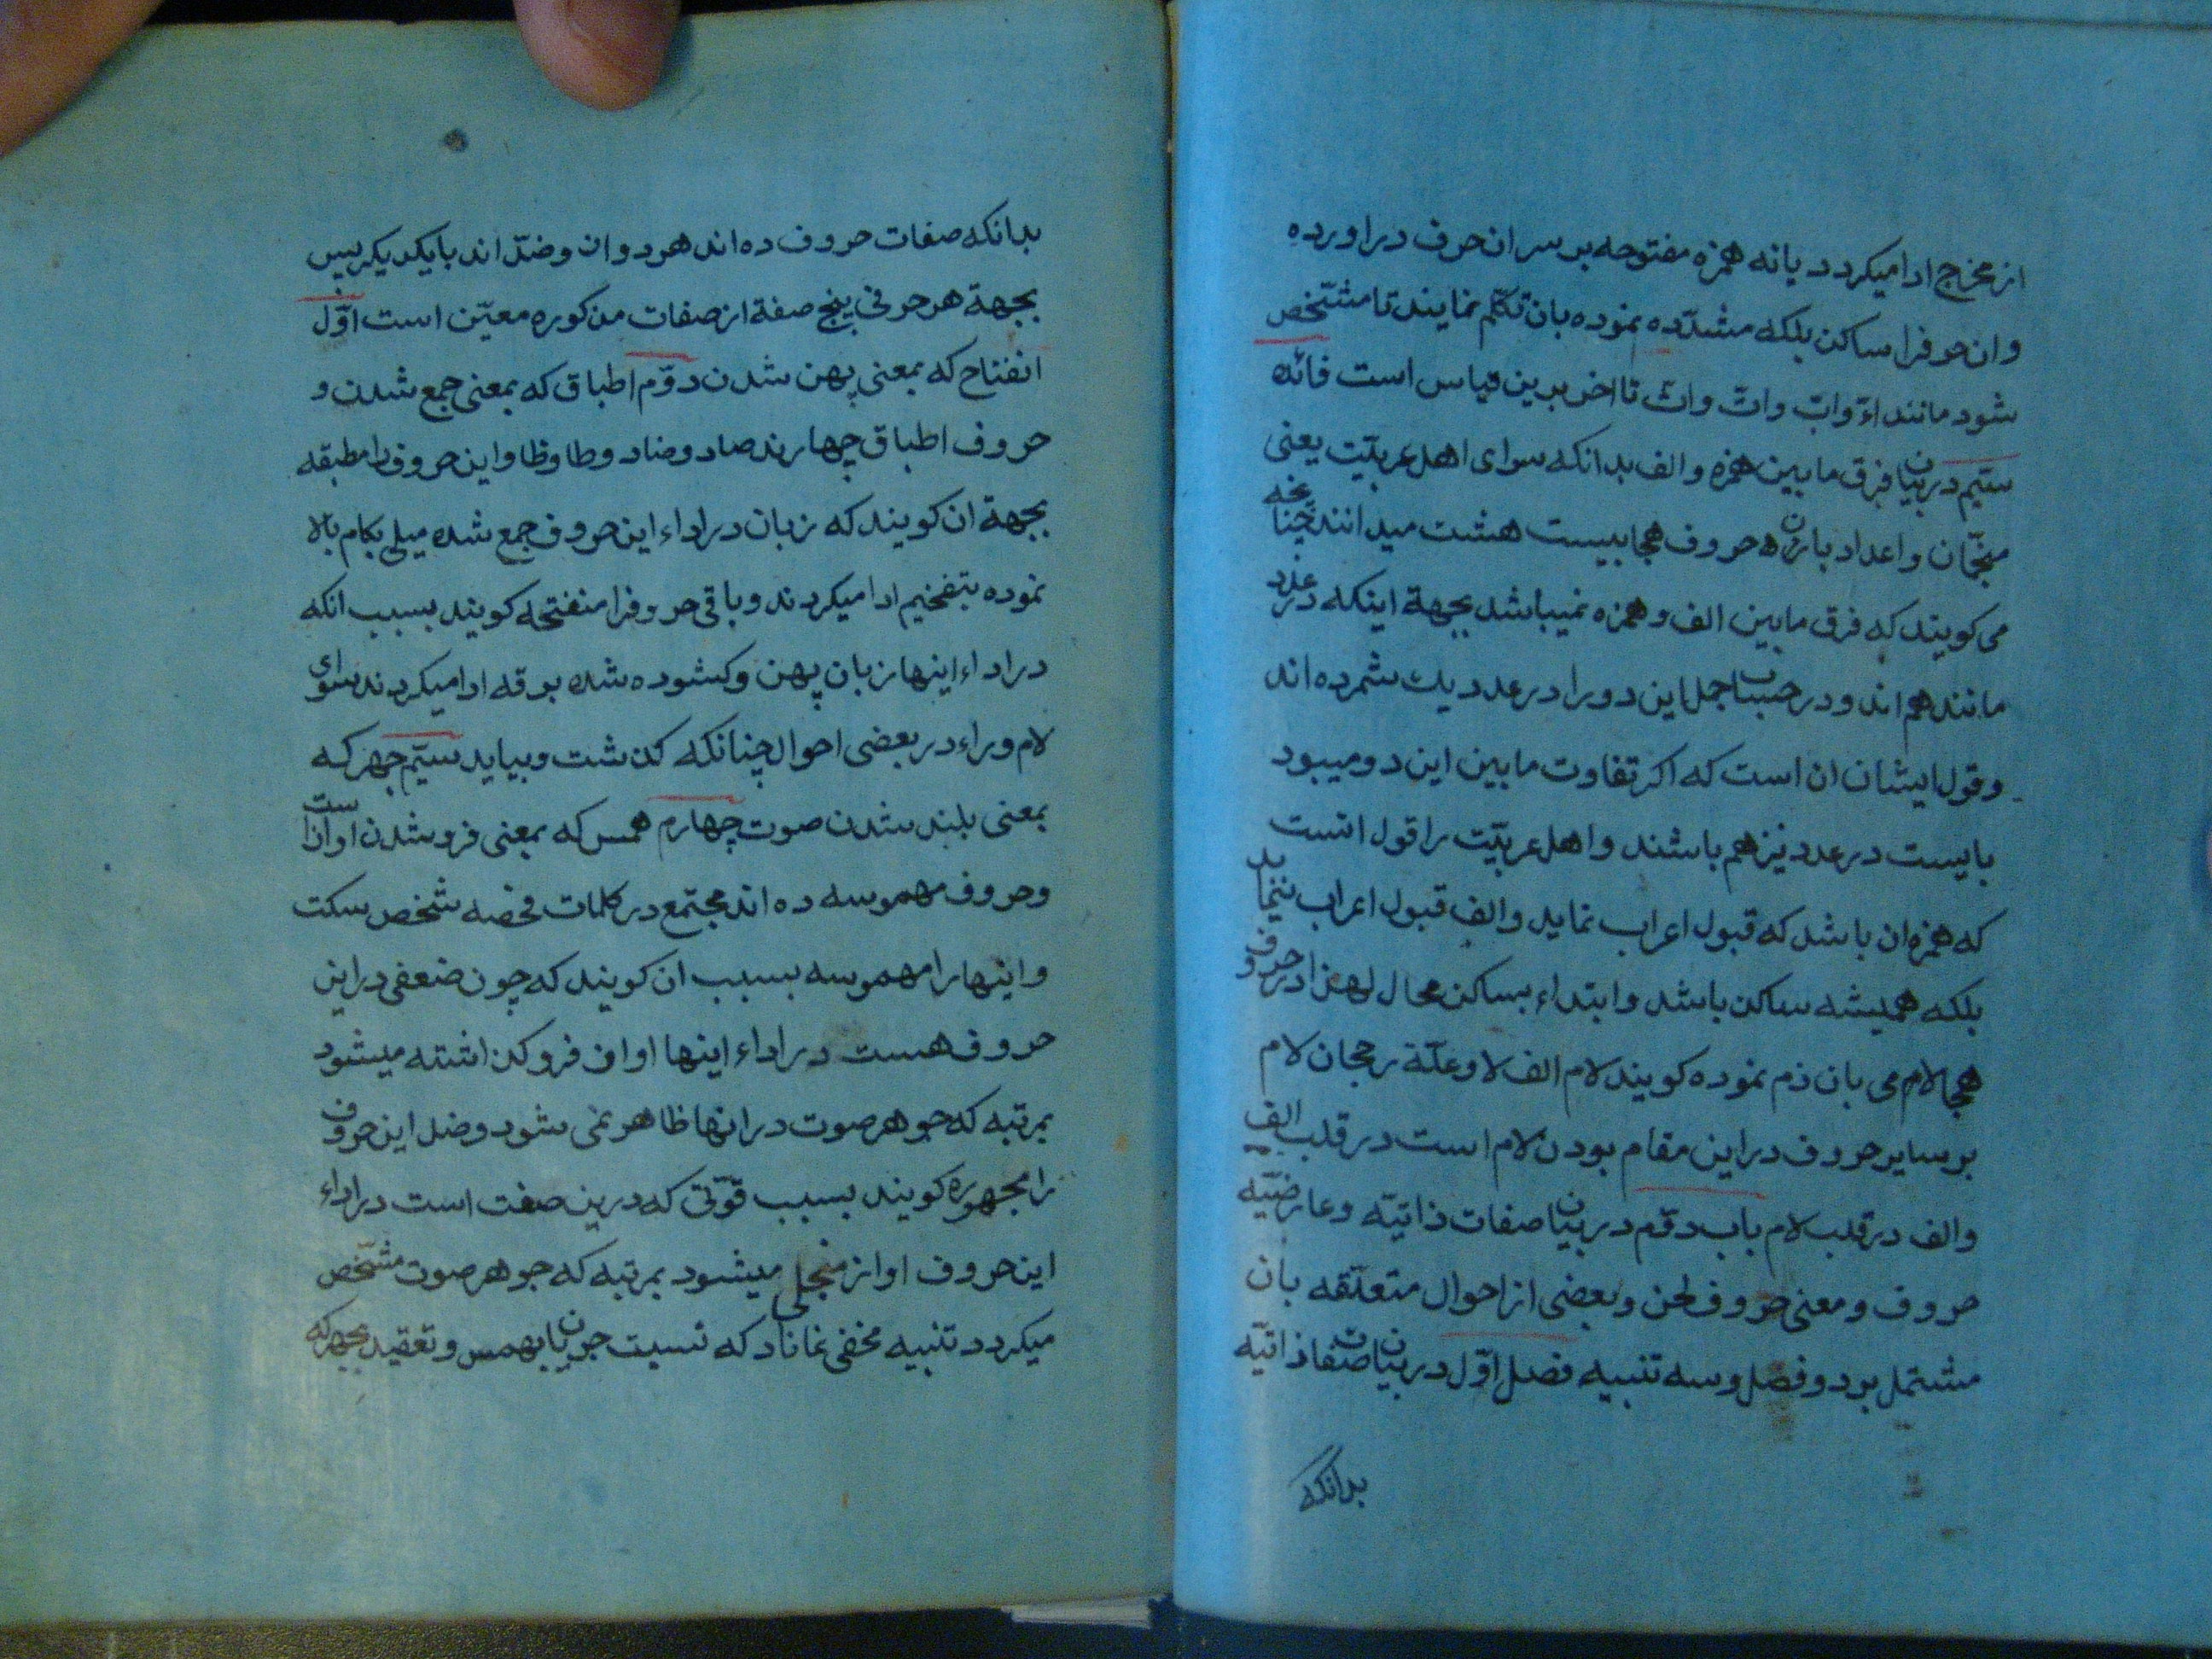 از مخرج ادا میکردد یانه همزه مفتوحه بر سر ان حرف دراورده
وان حرفرا ساکن بلکه مشدّده نموده بان تکلّم نمایند تا مشخّص
شود مانند ءاءّ واتّ واثّ تا اخر برین قیاس است فائده
سیّم در بیان فرق مابین همزه و الف بدانکه سوای اهل عربیّت یعنی
منجّمان و اعداد بازان حروف هجا بیست هشت میدانند چنانچه
می کویند که فرق مابین الف و همزه نمیباشد بجهة اینکه در عدد
مانند هم اند و در حساب جمل این دو را در عدد یك شمرده اند
و قول ایشان ان است که اکر تفاوت مابین این دو میبود
بایست در عدد نیز هم باشند و اهل عربیّت را قول انست
که همزه ان باشد که قبول اعراب نماید و الف قبول اعراب ننماید
بلکه همیشه ساکن باشد و ابتداء بساکن محال لهذا در حروف
هجا لام می بان ذم نموده کویند لام الف لا و علّة رجحان لام
بر سایر حروف در این مقام بودن لام است در قلب الف
و الف در قلب لام باب دوّم در بیان صفات ذاتیّه و عارضیّه
حروف و معنی حروف لحن و بعضی از احوال متعلّقه بان
مشتمل بر دو فصل و سه تنبیه فصل اوّل در بیان صفات ذاتیّه
بدانکه
بدانکه صفات حروف ده اند هر دو ان و ضدّ اند با یکدیکر پس
بجهة هر حرفی پنج صفة از صفات مذکوره معیّن است اوّل
انفتاح که بمعنی پهن شدن دوّم اطباق که بمعنی جمع شدن و
حروف اطباق چهارند صاد و ضاد و طا وظا و این حروف را مطبقه
بجهة ان کویند که زبان در اداء این حروف جمع شده میلی بکام بالا
نموده بتفخیم ادا میکردند و باقی حروفرا منفتحه کویند بسبب انکه
در اداء اینها زبان پهن و کشوده شده برقه ادا میکردند سوای
لام و راء در بعضی احوال چنانکه کذشت و بیاید سیّم جهر که
بمعنی بلند شدن صوت چهارم همس که بمعنی فرو شدن اوازاست
و حروف مهموسه ده اند مجتمع در کلمات فحصه شخص سکت
و اینها را مهموسه بسبب ان کویند که چون ضعفی در این
حروف هست در اداء اینها اواز فرو کذاشته میشود
بمرتبه که جوهر صوت در انها ظاهر نمی شود و ضد این حروف
را مجهوره کویند بسبب قوّتی که درین صفت است در اداء
این حروف اواز منجلی میشود بمرتبه که جوهر صوت مشخّص
میکردد تنبیه مخفی نماناد که نسبت جریان بهمس و تعقید بجهر که